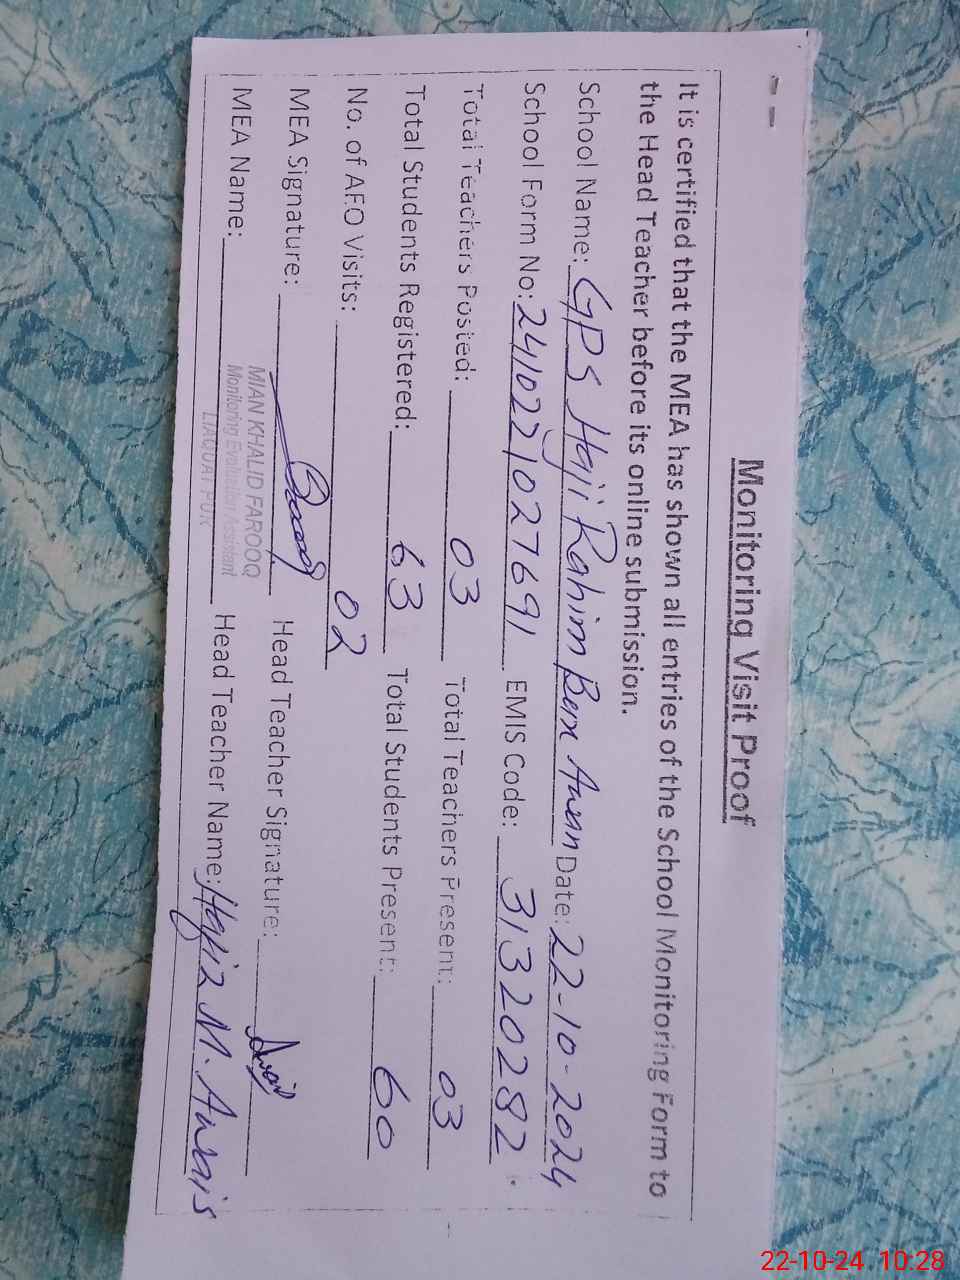 Monitoring Visit Proof
It is certified that the MEA has shown all entries of the School Monitoring Form to
the Head Teacher before its online submission.
School Name: GPS Haji Rahim Bux Awan Date: 22-10-2024
School Form No: 2410221027691 EMIS Code: 31320282
Total Teachers Posted: 03 Total Teachers Present: 03
Total Students Registered: 63 Total Students Present: 60
No. of AEO Visits: 02
MEA Signature: Head Teacher Signature:
MEA Name: Head Teacher Name: Hafiz M. Awais
MIAN KHALID FAROOQ
Monitoring Evaluation Assistant
LIAQUAT PUR
22-10-24 10:28